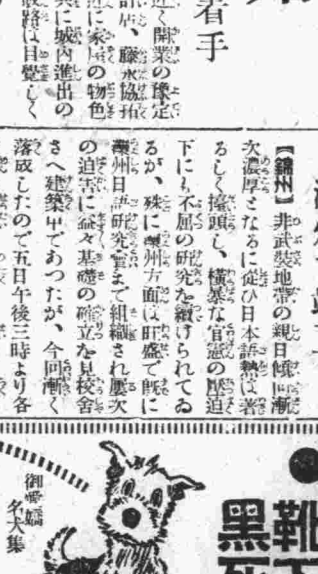 着手
近く開業の豫定
訊店、藤永協拓
近に家屋の物色
共に城内進出の
販路は目覺しく
【錦州】非武裝地帶の親日傾向漸
次濃厚となるに從ひ日本語熱は著
るしく擡頭し、橫暴な官憲の壓迫
下にも不屈の研究を續けられてゐ
るが、殊に灤州方面は旺盛で既に
灤州日語研究會まで組織され屢次
の迫害に益々基礎の確立を見校舍
さへ建築中であつたが、今回漸く
落成したので五日午後三時より各
靴下
黑
御愛嬌
名犬集